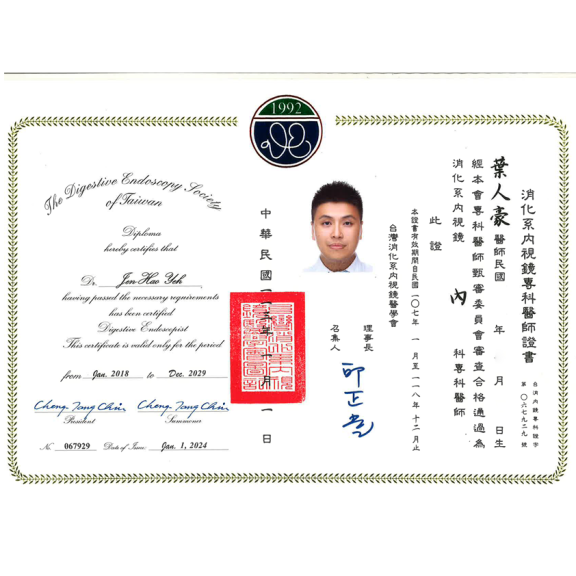 1992
The Digestive Endoscopy Society
of Taiwan
Diploma
hereby certifies that
Dr. Jen-Hao Yeh
having passed the necessary requirements
has been certified
Digestive Endoscopist
This certificate is valid only for the period
from Jan. 2018 to Dec. 2029
Cheng Tang Chiu Cheng Tang Chiu
President Summoner
№ 067929 Date of Issue: Jan. 1, 2024
消化系內視鏡專科醫師證書
台消內鏡專科證字
第〇六七九二九號
葉人豪醫師民國 年 月 日生
經本會專科醫師甄審委員會審查合格通過為
消化系內視鏡 內 科專科醫師
此證
本證書有效期間自民國一〇七年 一月至一一八年十二月止
台灣消化系內視鏡醫學會
理事長
召集人
邱正堂
中華民國 月 一日